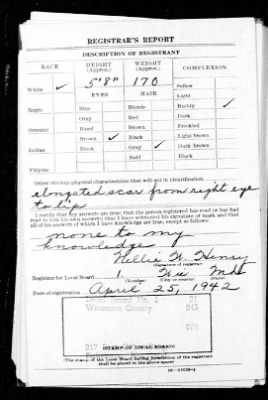 REGISTRAR'S REPORT
DESCRIPTION OF REGISTRANT
RACE HEIGHT (Approx.) WEIGHT (Approx.) COMPLEXION
White ✓ 5'8" 170 Sallow
EYES HAIR Light
Negro Blue Blonde Ruddy ✓
Gray Red Dark
Oriental Hazel Brown Freckled
Brown ✓ Black Light brown
Indian Black Gray ✓ Dark brown
Bald Black
Filipino
Other obvious physical characteristics that will aid in identification
elongated scar from right eye
to lip
I certify that my answers are true; that the person registered has read or has had
read to him his own answers; that I have witnessed his signature or mark and that
all of his answers of which I have knowledge are true, except as follows:
none to my
knowledge
W. Henry
(Signature of registrar)
Registrar for Local Board 1
(Number) (City or county) (State)
Date of registration April 25, 1942
Local Board No. 1 01
County
(STAMP OF LOCAL BOARD)
(The stamp of the Local Board having jurisdiction of the registrant
shall be placed in the above space)